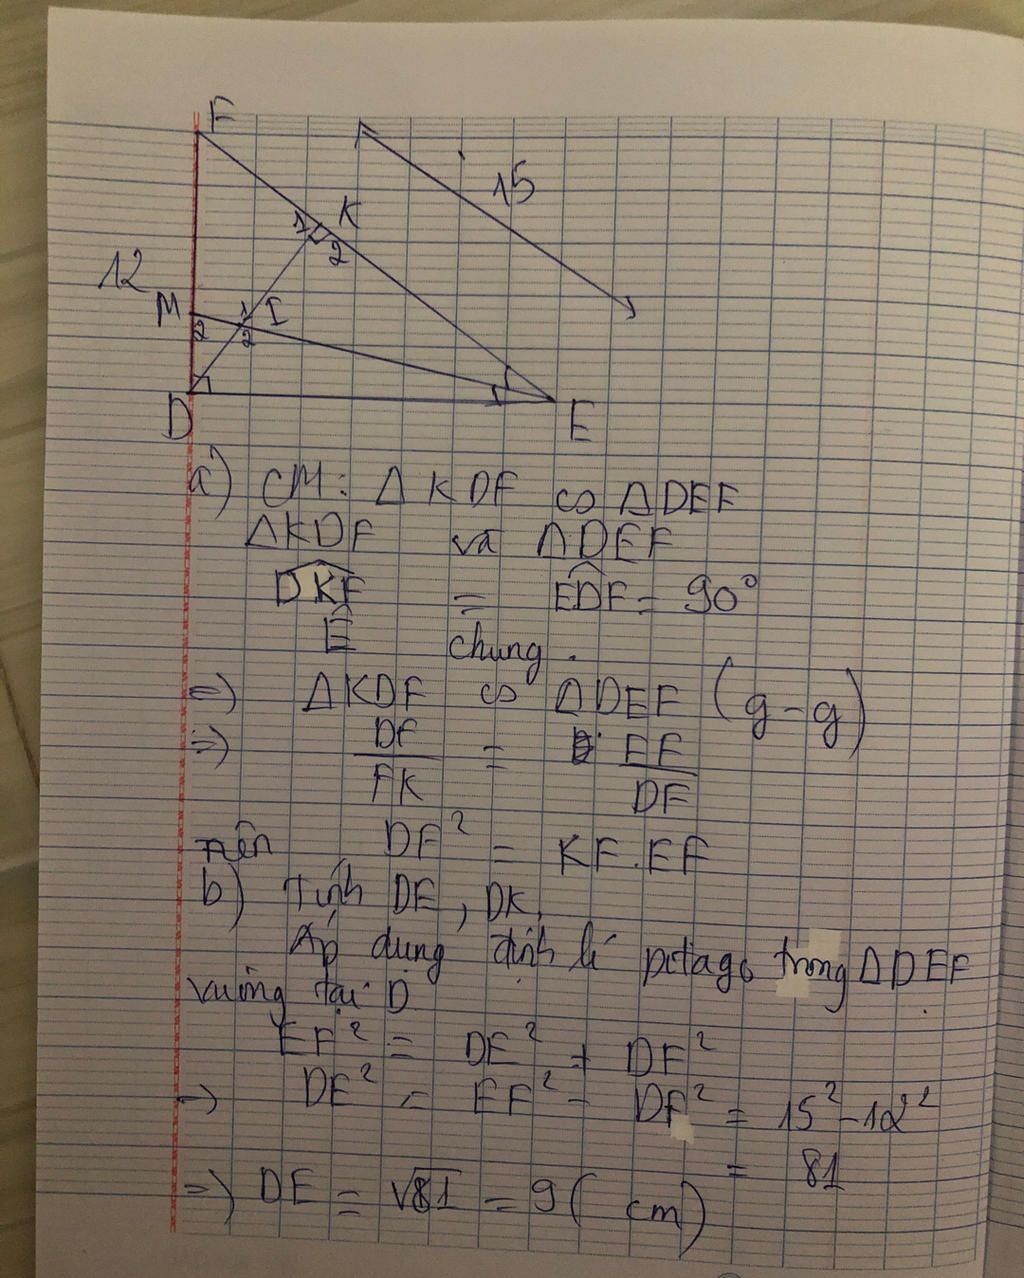 F
15
1 K
2
12
M 1 I
2 2
D
E
a) CM: Δ KDF ∽ ΔDEF
ΔKDF và ΔDEF
DKF = EDF = 90°
Ê chung.
=> ΔKDF ∽ ΔDEF (g-g)
=> DF/FK = EF/DF
nên DF² = KF.EF
b) Tính DE, DK,
Áp dụng định lí pitago trong ΔDEF
vuông tại D
EF² = DE² + DF²
-> DE² = EF² - DF² = 15² - 12²
= 81
=> DE = √81 = 9 (cm)